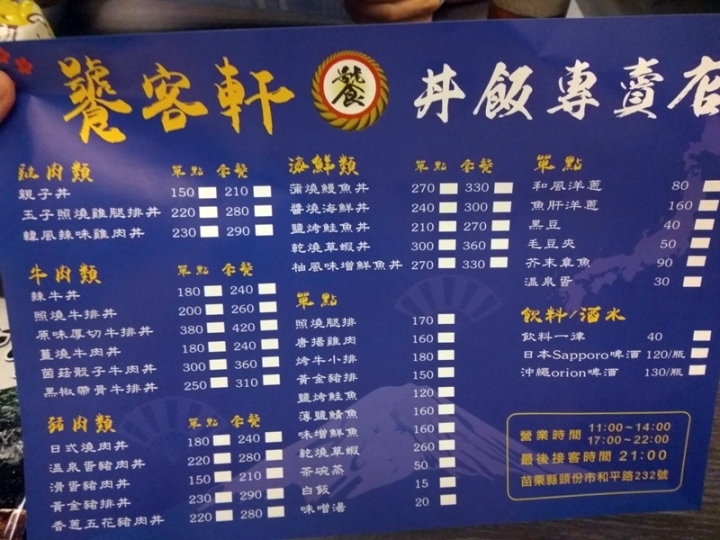 饕客軒 饕 丼飯專賣店
雞肉類 單點 套餐
親子丼 150 210
玉子照燒雞腿排丼 220 280
韓風辣味雞肉丼 230 290
牛肉類 單點 套餐
辣牛丼 180 240
照燒牛排丼 200 260
原味厚切牛排丼 380 420
薑燒牛肉丼 180 240
菌菇骰子牛肉丼 300 360
黑椒帶骨牛排丼 250 310
豬肉類 單點 套餐
日式燒肉丼 180 240
溫泉蛋豬肉丼 220 280
滑蛋豬肉丼 150 210
黃金豬排丼 230 290
香蔥五花豬肉丼 220 280
海鮮類 單點 套餐
蒲燒鰻魚丼 270 330
醬燒海鮮丼 240 300
鹽烤鮭魚丼 210 270
乾燒草蝦丼 300 360
柚風味增鮮魚丼 270 330
單點
照燒腿排 170
唐揚雞肉 160
烤牛小排 180
黃金豬排 150
鹽烤鮭魚 120
薄鹽鯖魚 160
味增鮮魚 160
乾燒草蝦 260
茶碗蒸 50
白飯 15
味噌湯 20
單點
和風洋蔥 80
魚肝洋蔥 160
黑豆 40
毛豆夾 50
芥末章魚 90
溫泉蛋 30
飲料/酒水
飲料一律 40
日本Sapporo啤酒 120/瓶
沖繩orion啤酒 130/瓶
營業時間 11:00~14:00
17:00~22:00
最後接客時間 21:00
苗栗縣頭份市和平路232號